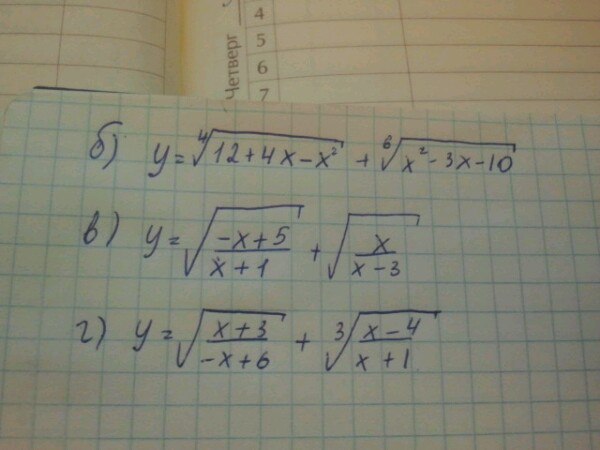 4
Четверг
5
6
7
б) y = \sqrt[4]{12+4x-x^2} + \sqrt[6]{x^2-3x-10}
в) y = \sqrt{\frac{-x+5}{x+1}} + \sqrt{\frac{x}{x-3}}
г) y = \sqrt{\frac{x+3}{-x+6}} + \sqrt[3]{\frac{x-4}{x+1}}